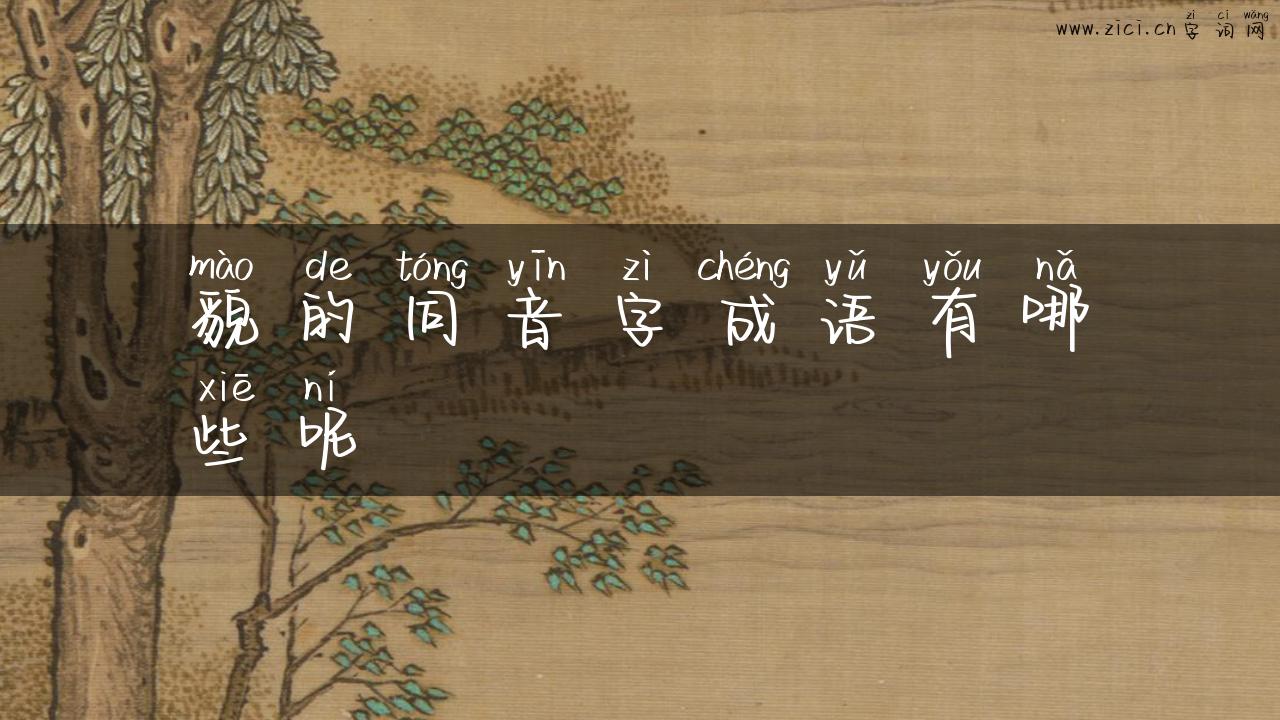 zì cí wǎng
www.zici.cn 字词网
mào de tóng yīn zì chéng yǔ yǒu nǎ
貌的同音字成语有哪
xiē ní
些呢